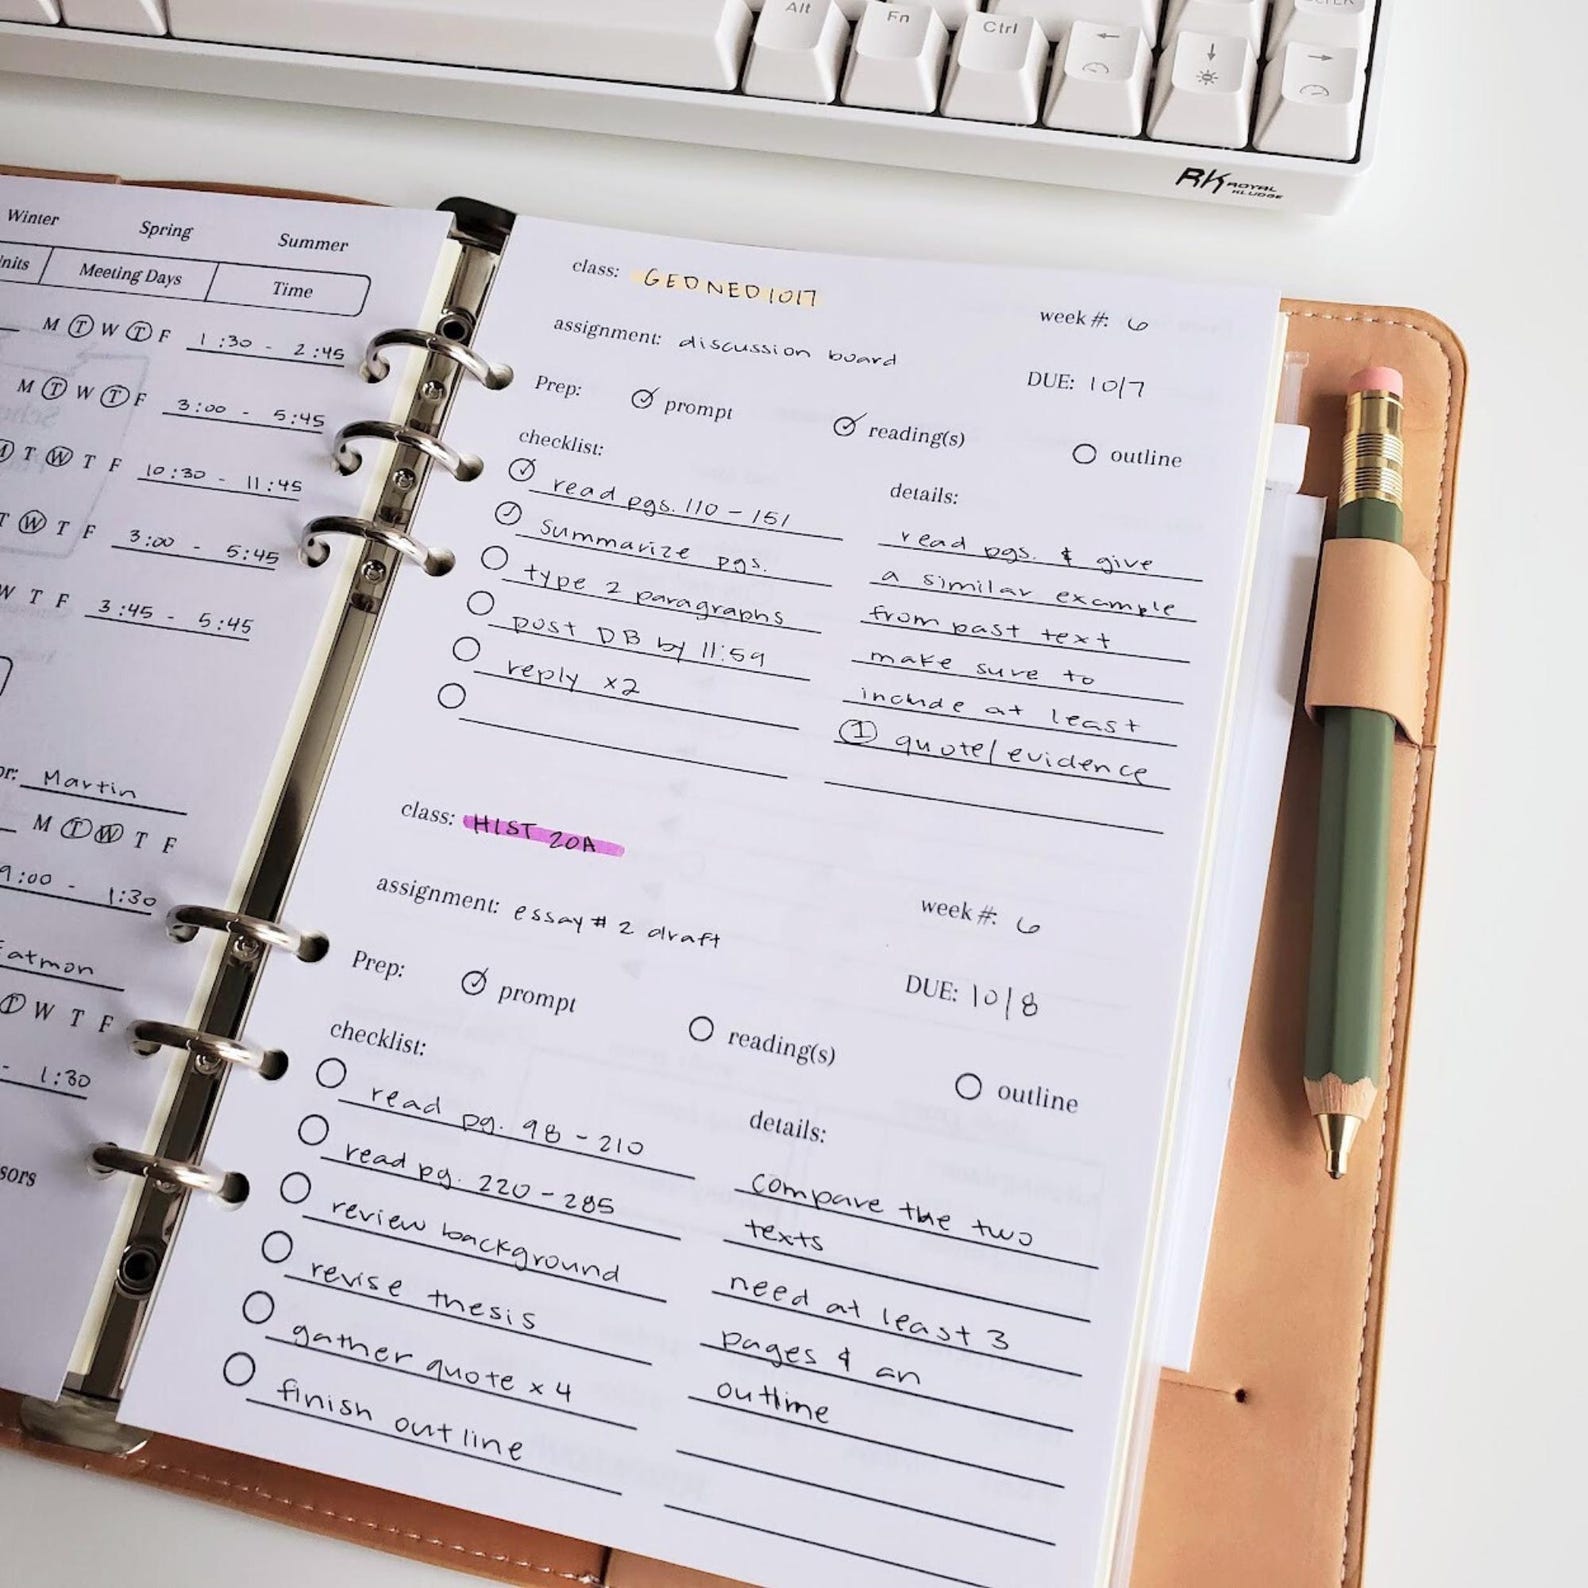 Alt
Fn
Ctrl
RK ROYAL
KLUDGE
Winter Spring Summer
Meeting Days Time
M T W T F 1:30 - 2:45
M T W T F 3:00 - 5:45
T W T F 10:30 - 11:45
W T F 3:00 - 5:45
W T F 3:45 - 5:45
Martin
M T W T F
9:00 - 1:30
W T F
- 1:30
class: GEDNED1017
week #: 6
assignment: discussion board
DUE: 10/7
Prep: prompt reading(s) outline
checklist:
read pgs. 110 - 151
summarize pgs.
type 2 paragraphs
post DB by 11:59
reply x2
details:
read pgs. & give
a similar example
from past text
make sure to
include at least
1 quote/evidence
class: HIST 20A
week #: 6
assignment: essay # 2 draft
DUE: 10/8
Prep: prompt reading(s) outline
checklist:
read pg. 98 - 210
read pg. 220 - 285
review background
revise thesis
gather quote x 4
finish outline
details:
compare the two
texts
need at least 3
pages & an
outline